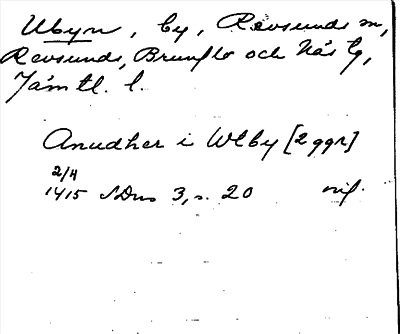 Utbyn, by, Revsunds sn,
Revsunds, Brunflo och Näs tg,
Jämtl. l.
Anudher i Wtby [2 ggr]
2/4
1415 SDns 3, s. 20 orig.